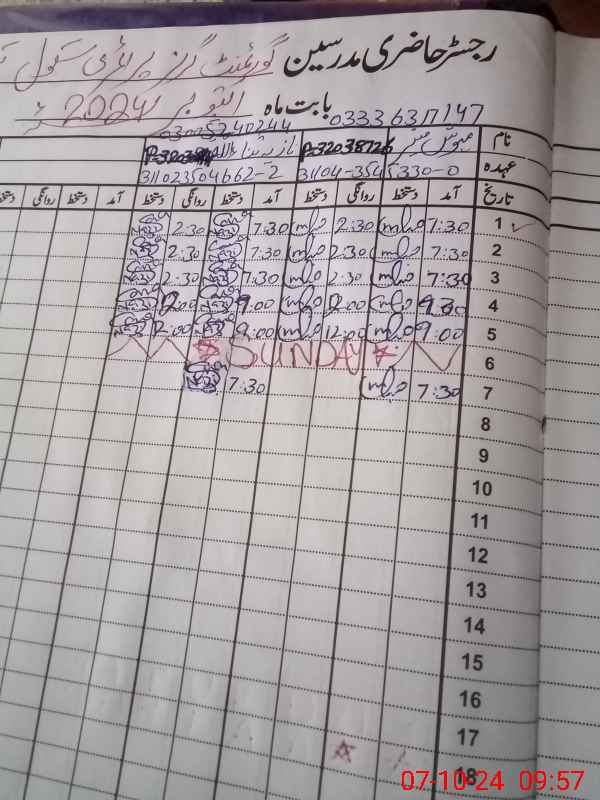 رجسٹر حاضری مدرسین گورنمنٹ گرلز پرائمری سکول
بابت ماہ اکتوبر 2024ء
0333 6317147
03005240244
نام
P-32038726
نازیہ ثناءاللہ
عہدہ
31104-3545330-0
311023504662-2
تاریخ آمد دستخط روانگی دستخط آمد دستخط روانگی دستخط آمد دستخط روانگی دستخط
1 7:30 2:30 7:30 2:30
2 7:30 2:30 7:30 2:30
3 7:30 2:30 7:30 2:30
4 9:00 12:00
5 9:00 12:00 9:00 12:00
6 SUNDAY
7 7:30 7:30
8
9
10
11
12
13
14
15
16
17
18
07-10-24 09:57